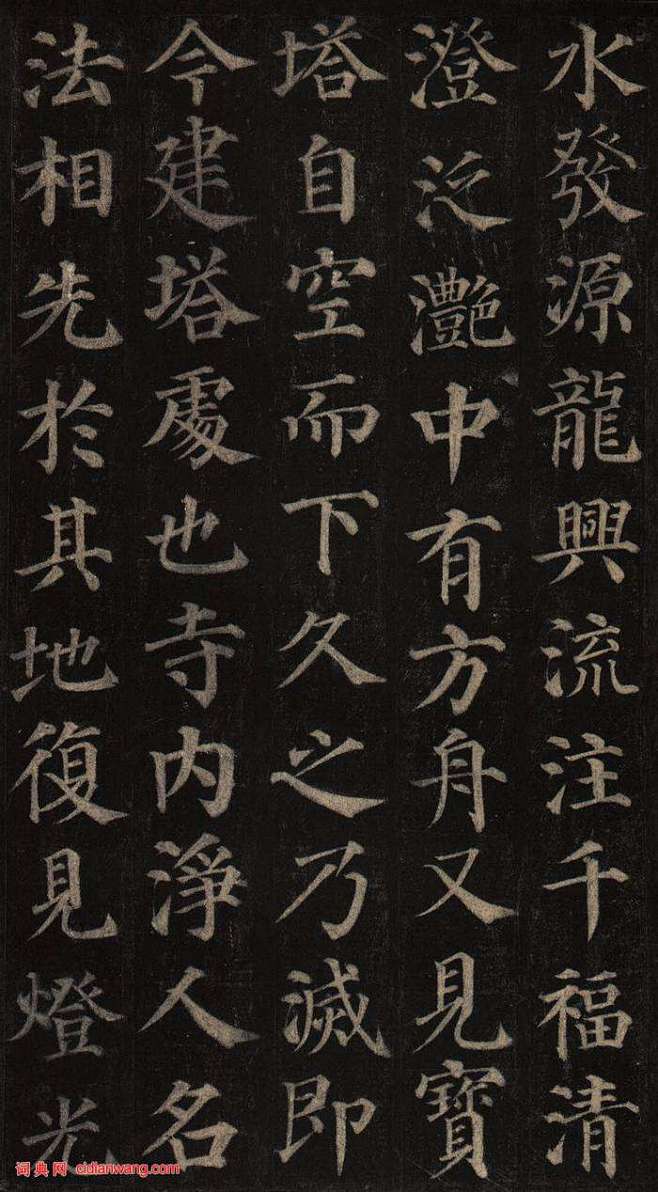 水發源龍興流注千福清
澄泛灩中有方舟又見寶
塔自空而下久之乃滅即
今建塔處也寺内淨人名
法相先於其地復見燈光
词典网 cidianwang.com